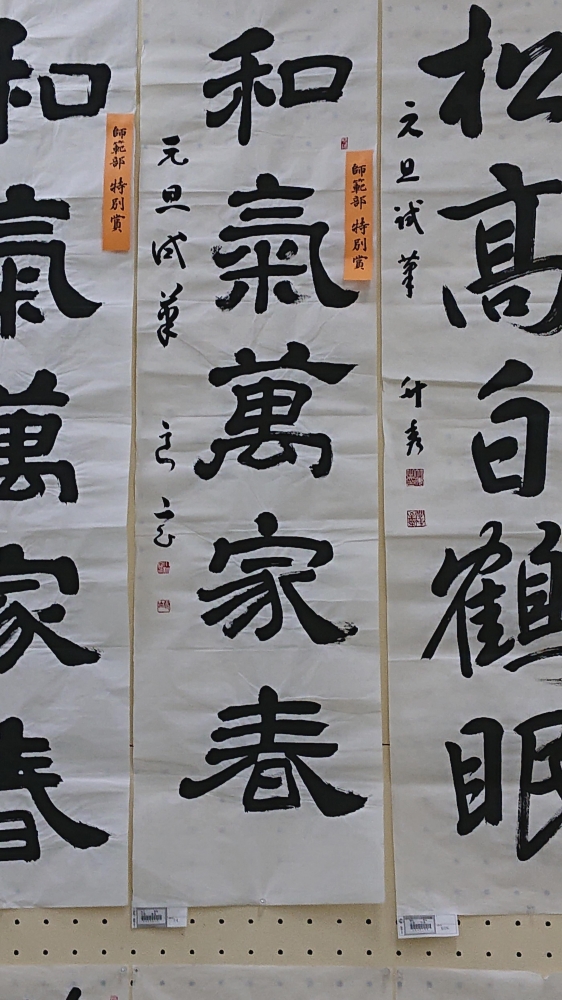 松高白鶴眠
元旦試筆
和氣萬家春
師範部 特別賞
元旦試筆
和氣萬家春
師範部 特別賞